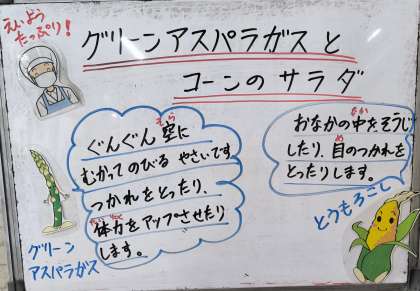 えいよう
たっぷり!
グリーンアスパラガスと
コーンのサラダ
ぐんぐん空に
そら
むかってのびるやさいです
つかれをとったり、
体力をアップさせたり
します。
グリーン
アスパラガス
おなかの中をそうじ
なか
したり、目のつかれを
め
とったりします。
とうもろこし